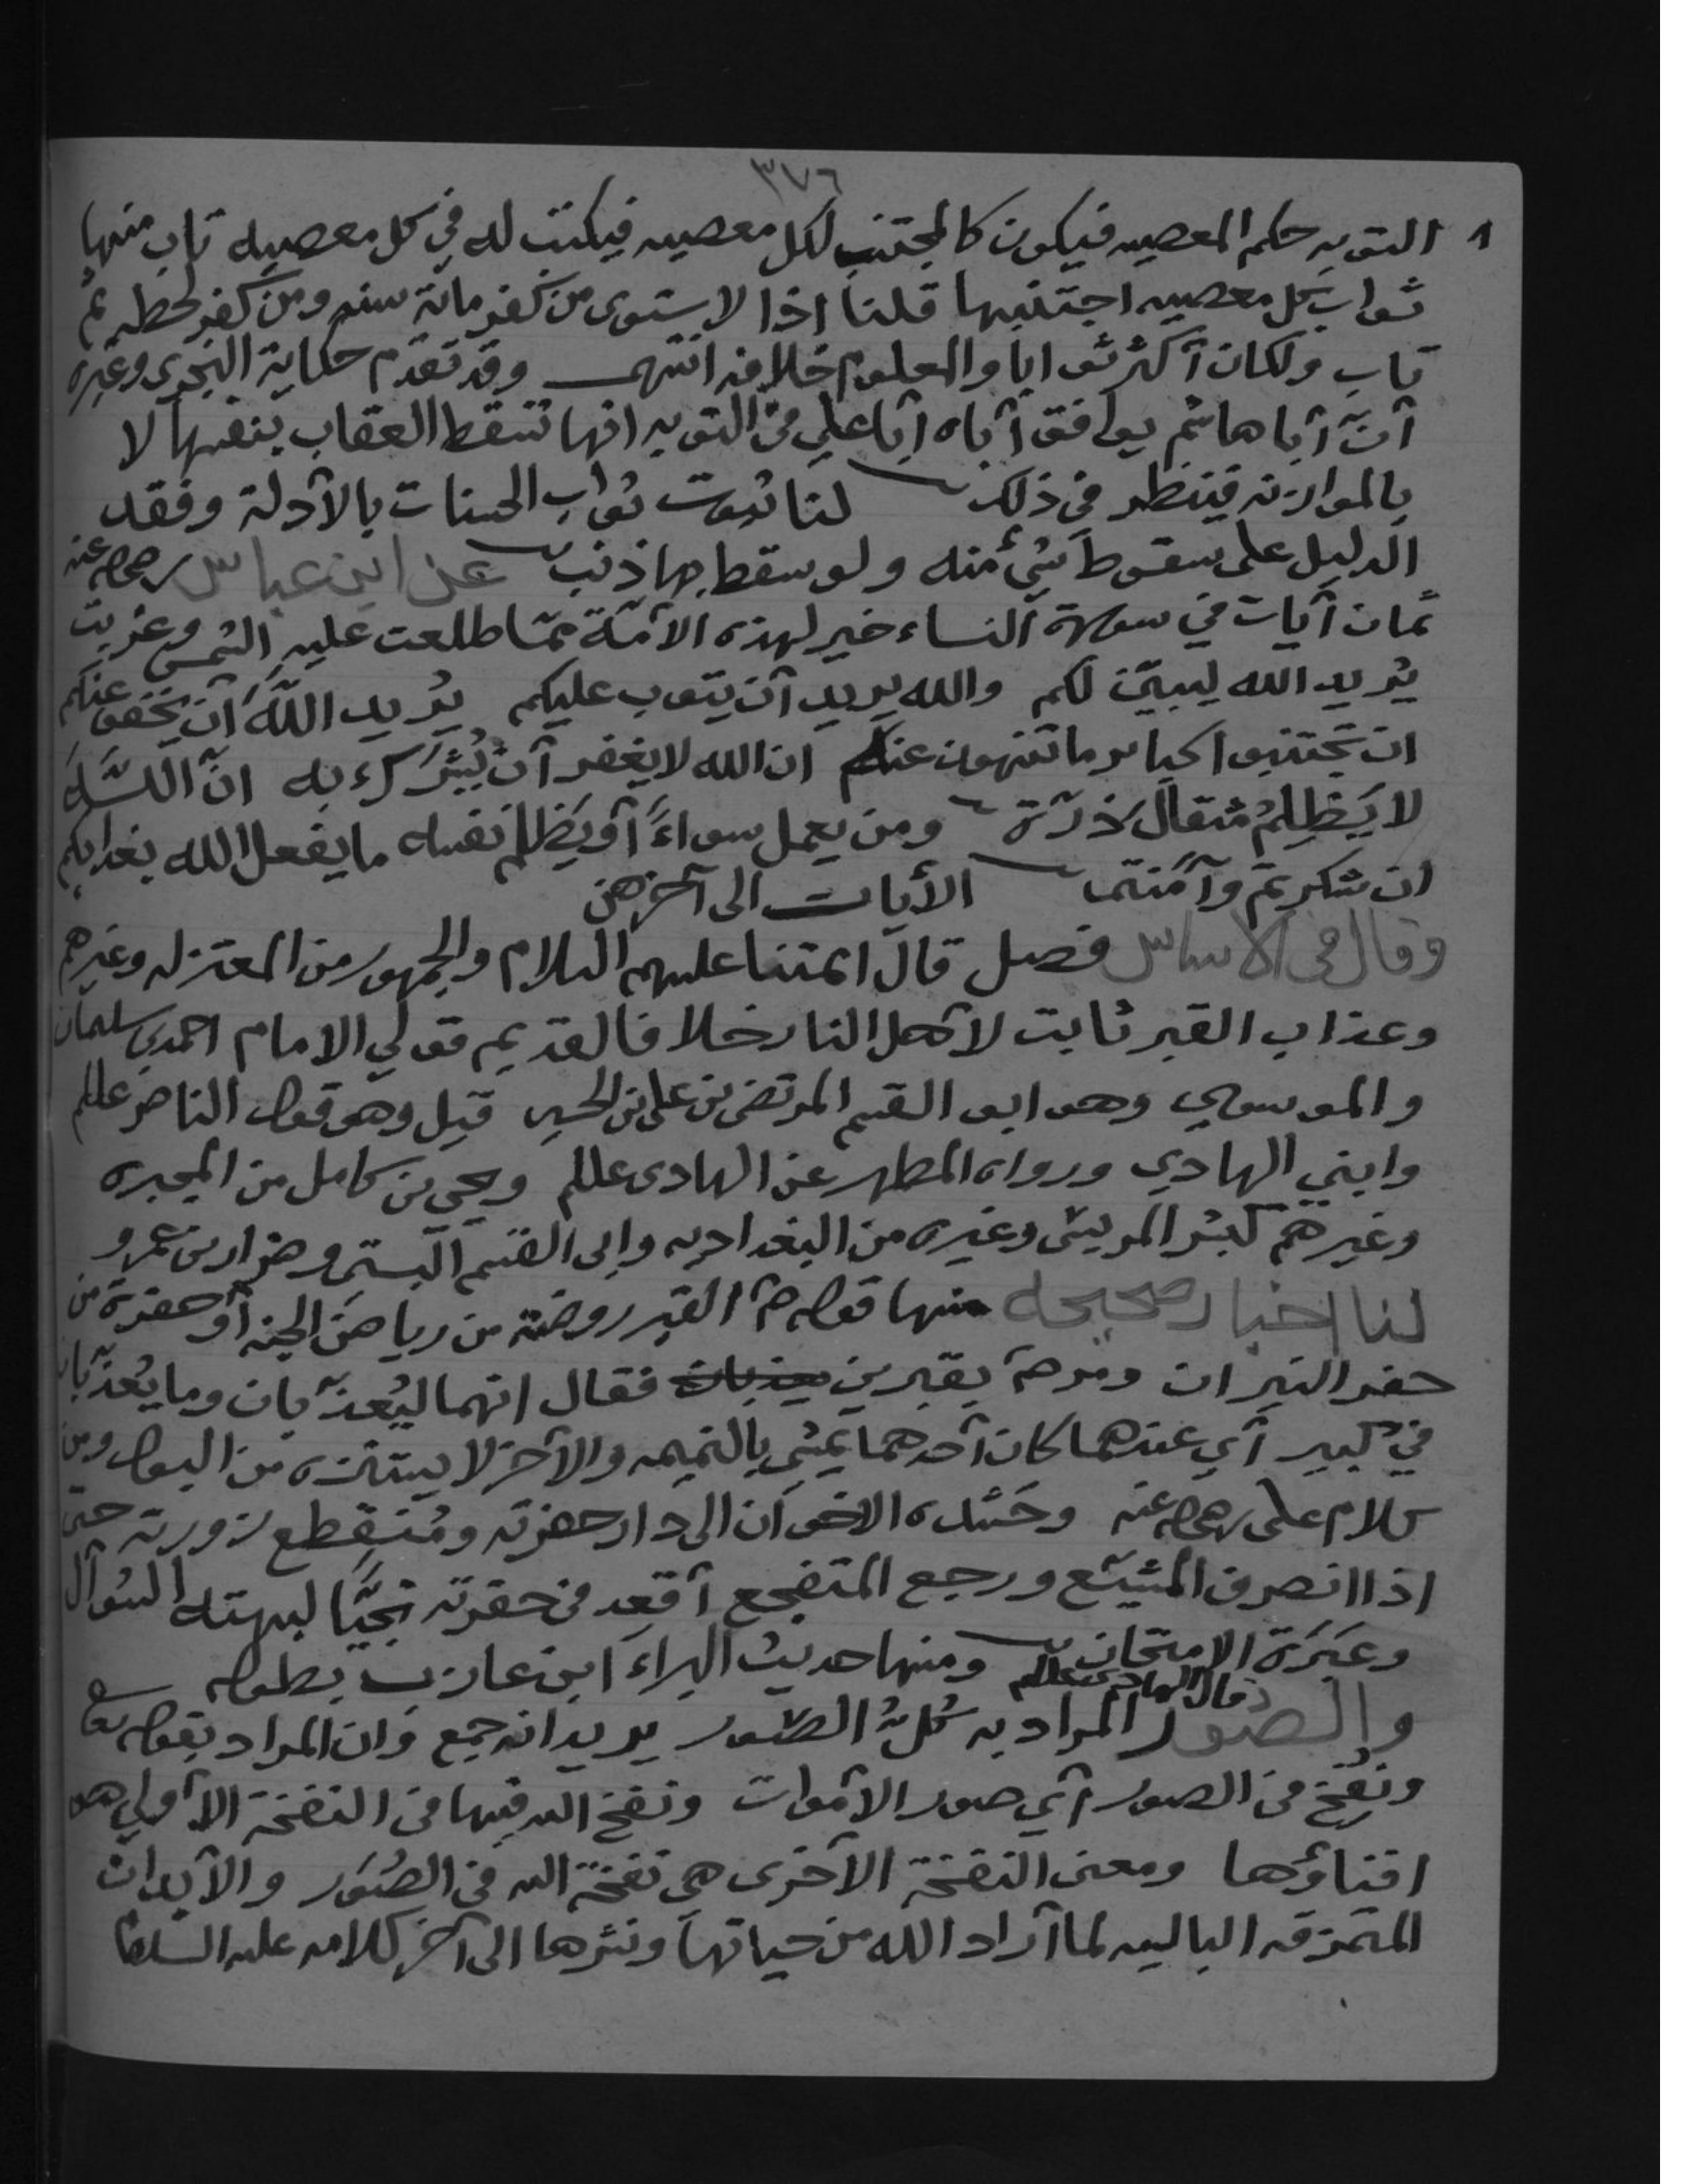 ٣٧٦
١ التوبه حكم المعصيه فيكون كالمجتنب لكل معصيه فيكتب له في كل معصيه تاب منها
ثواب كل معصيه اجتنبها قلنا اذا لا يستوى من كفر مائة سنه ومن كفر لحظه ثم
تاب ولكان أكثر ثوابا والمعلوم خلافه انتهى وقد تقدم حكاية النجرى وغيره
أنّ أبا هاشم يوافق أباه أبا علي في التوبه انها تسقط العقاب بنفسها لا
بالموازنه فينظر في ذلك لنا ثبوت ثواب الحسنات بالأدلة وفقد
الدليل على سقوط شيء منه ولو سقط بها ذنب عن ابن عباس رضي الله عنه
ثمان آيات في سورة النساء خير لهذه الأمّة ممّا طلعت عليه الشمس وغربت
يُريد الله ليبيّن لكم والله يريد أن يتوب عليكم يُريد اللهُ أن يخفف عنكم
ان تجتنبوا كبائر ما تنهون عنه ان الله لا يغفر أن يُشرَك به انّ اللّٰه
لا يَظلِمُ مثقال ذرّة ومن يعمل سواءً أو يَظلم نفسه ما يفعل الله بعذابكم
ان شكرتم وآمنتم الأيات الى آخرهن
وقال في الاساس فصل قال ائمتنا عليهم السلام والجمهور من المعتزله وغيرهم
وعذاب القبر ثابت لأهل النار خلافا لقديم قولي الامام احمد بن سليمان
والموسوي وهو ابو القسم المرتضى بن علي بن الحسين قيل وهو قول الناصر عللم
وابني الهادي ورواه المطهر عن الهادى عللم ويحي بن كامل من المجبره
وغيرهم كبشر المريسي وغيره من البغداديه وابى القسم البستي وضرار بن عمرو
لنا اخبار صحيحه منها قوله صَ القبر روضة من رياض الجنه أو حفرة من
حفر النيران ومر صَ بقبرين يعذبان فقال انهما ليُعذّبان وما يُعذّبان
في كبير أي عندهما كان أحدهما يمشي بالنميمه والآخر لا يستنزه من البول ومن
كلام علي رضي الله عنه وحَشده الاخوان الى دار حفرته ومُنقطع زورته حتى
اذا انصرف المشيّع ورجع المتفجع أقعد في حفرته نجيًّا لبهته السّوأل
وعَبَرَة الامتحان ومنها حديث البراء ابن عازب بطوله
قال الهادى عللم
والصّور المراد به كلّ الصّور يريد انه جمع وان المراد بقوله تعا
ونُفخ في الصور أي صور الأموات ونفخ الله فيها في النفخة الأولي هو
افناؤها ومعنى النفخة الأخرى هي نفخة الله في الصُوَر والأبدان
المتمزقه الباليه لما أراد الله من حياتها ونشرها الى آخر كلامه عليه السلام